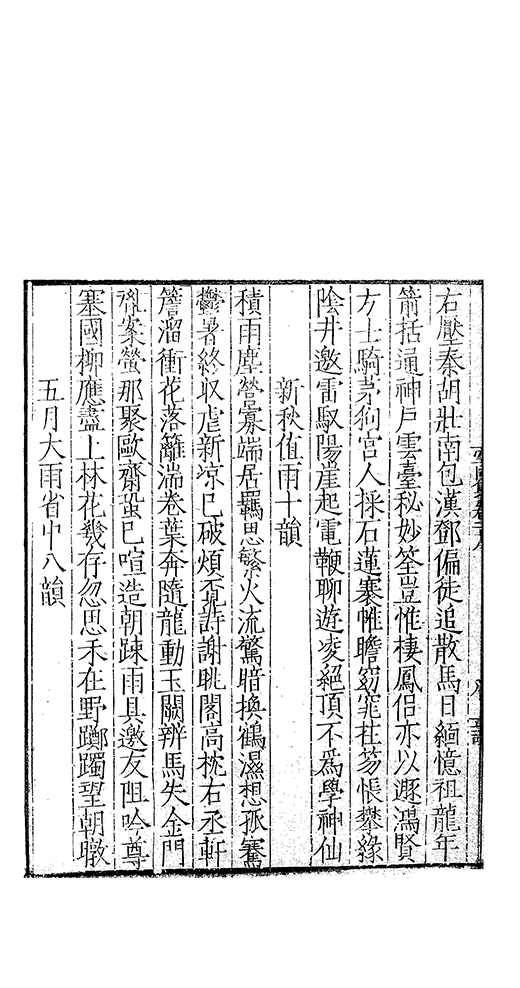 右壓秦胡壯南包漢鄧偏徒追散馬日緬憶祖龍年
箭括通神戶雲臺秘妙筌豈惟棲鳳侶亦以遯鴻賢
方士騎茅狗宮人採石蓮褰帷瞻窈窕拄笏悵攀緣
陰井邀雷馭陽崖起電鞭聊遊凌絕頂不爲學神仙
新秋值雨十韻
積雨塵營寡端居羈思繁火流驚暗換鶴濕想孤騫
鬱暑終収虐新涼已破煩披詩謝眺閣高枕右丞軒
簷溜衝花落籬湍卷葉奔隨龍動玉闕辨馬失金門
亂案螢那聚歐齋蛩已喧造朝踈雨具邀友阻吟尊
塞國柳應盡上林花幾存忽思禾在野躑躅望朝暾
五月大雨省中八韻